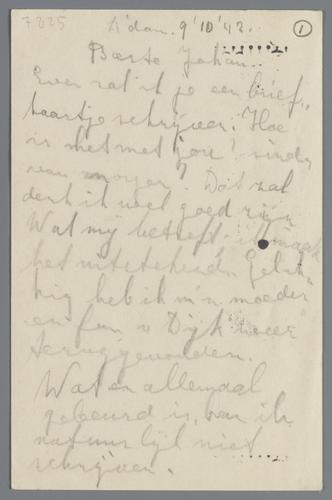 7825
A'dam. 9'10'42. 1
Beste Johan..
Even zal ik je een brief„
kaartje schrijven. Hoe
is het met jou? sinds
van morgen? Dat zal
denk ik wel goed zijn
Wat mij betreft ik maak
het uitstekend. Geluk„
kig heb ik m'n moeder
en fam v Dijk weer
teruggevonden.
Wat er allemaal
gebeurd is, kan ik
natuurlijk niet
schrijven.